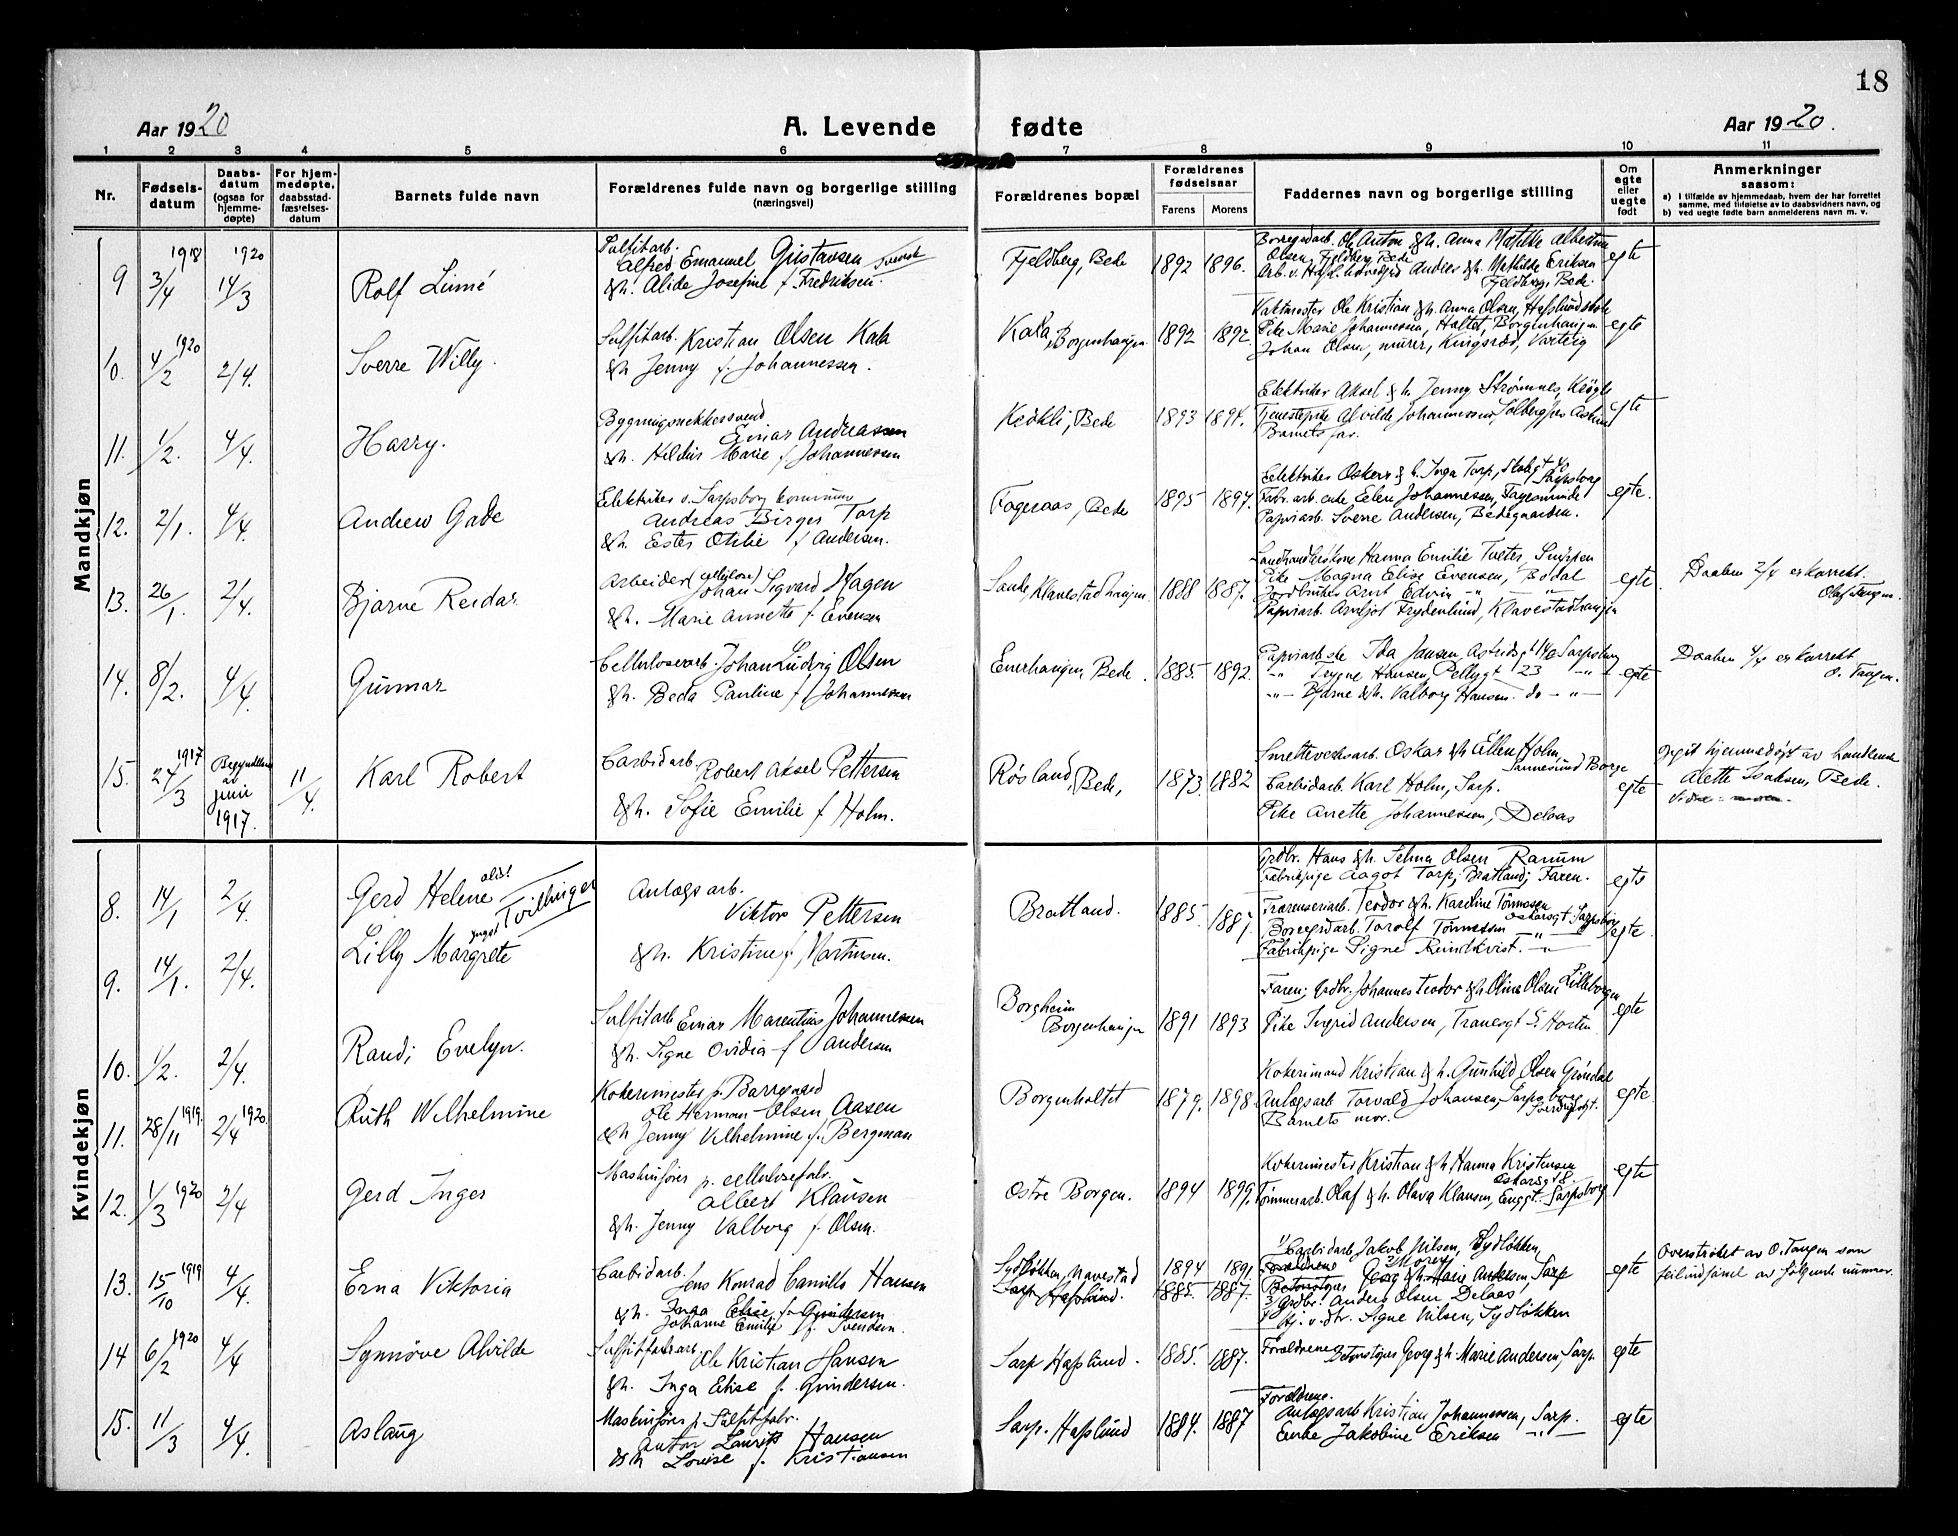 18
Aar 1920
A. Levende
fødte
Aar 1920.
1 2 3 4 5 6 7 8 9 10 11
Nr.
Fødsels-
datum
Daabs-
datum
(ogsaa for
hjemme-
døpte)
For hjem-
medøpte,
daabsstad-
fæstelses-
datum
Barnets fulde navn
Forældrenes fulde navn og borgerlige stilling
(næringsvei)
Forældrenes bopæl
Forældrenes
fødselsaar
Farens Morens
Faddernes navn og borgerlige stilling
Om
egte
eller
uegte
født
Anmerkninger
saasom:
a) I tilfælde av hjemmedaab, hvem der har forrettet
samme, med tilføielse av to daabsvidners navn, og
b) ved uegte fødte barn anmelderens navn m. v.
Mandkjøn
9 1918 3/4 1920 14/3 Rolf
Sulfitarb.
Alfred Emanuel Gustavsen Svensk
&h. Alide Josefine f Fredriksen.
Fjeldberg, Bede 1892 1896.
Borregdarb. Ole Anton &h. Anna Matilde Albertine
Olsen, Fjeldberg Bede
Arb. v. Hafsl. hovedgd Anders &h. Mathilde Eriksen
Fjeldberg, Bede.
egte
10. 1920 4/2 2/4. Sverre Willy.
Sulfitarb. Kristian Olsen Kala
&h Jenny f. Johannessen.
Kala, Borgenhaugen 1892 1892.
Vaktmester Ole Kristian &h. Anna Olsen, Hafslundskole
Pike Marie Johannessen, Holtet, Borgenhaugen
Johan Olsen, murer, Kingsrød, Varteig
egte
11. 1/2. 4/4. Harry.
Bygningssnekkersvend
Einar Andreassen
&h. Marie f Johannessen
Bede 1893 1894.
Elektriker Aksel & h. Jenny Strømnes,
Tjenestepike Alvilde Johannessen,
Barnets far.
egte
12. 2/1. 4/4. Andrew Gade
Elektriker v. Sarpsborg kommune
Andreas Birger Torp
&h. Ester Otilie f Andersen.
Fageraas, Bede 1895 1897.
Elektriker Oskar & h. Inga Torp, Sarpsborg
Fabr. arb. enke Elen Johannessen,
Papirarb. Sverre Andersen, Bedegaarden.
egte.
13. 26/1. 2/4. Bjarne Reidar
Arbeider (cellulose)
Johan Sigvard Hagen
&h. Marie Annette f Evensen
Sande, Klavestadhaugen 1888 1887.
Hanna Emilie Tveter
Pike Magna Elise Evensen, Bødal
Jordbruker Arnt Edvin -"- -"-
Papirarb. Arnljot Frydenlund, Klavestadhaugen
egte.
Daaben 2/4 er korrekt.
Olaf Tangen.
14. 8/2. 4/4. Gunnar
Cellulosearb. Johan Ludvig Olsen
&h. Beda Pauline f Johannessen
Enerhaugen, Bede. 1885. 1892.
Papirarb ske Ida Jansen, Astridsgt 146 Sarpsborg
-"- Trygve Hansen, Pellygt 23 -"-
-"- Bjarne &h. Valborg Hansen. do -"-
egte
Daaben 4/4 er korrekt
O. Tangen.
15. 1917 24/3 Begyndelsen
av
juni
1917. 11/4. Karl Robert
Carbidarb.
Robert Aksel Pettersen
&h. Sofie Emilie f Holm.
Røsland, Bede, 1873. 1882
Smelteverksarb. Oskar &h Ellen Holm
Sannesund Borge
Carbidarb. Karl Holm, Sarp.
Pike Anette Johannessen, Delaas
egte
hjemmedøpt av handlende
Alette Isaksen, Bede.
Kvindekjøn
8. 14/1 2/4. Gerd Helene eldst
Tvillinger
9. 14/1. 2/4. Lilly Margrete yngst
Anlægsarb.
Viktor Pettersen
&h. Kristine f. Martinsen.
Bratland. 1885. 1887.
Grdbr. Hans &h. Selma Olsen Ranum
Fabrikpige Aagot Torp, Bratland; Faren.
egte
Teodor &h. Karoline Tønnesen
Oskarsgt. Sarpsborg
Borregdarb. Torolf Tønnessen -"-
Fabrikpige Signe -"-
egte.
10. 1/2. 2/4. Randi Evelyn.
Sulfitarb Einar Marentius Johannessen
&h. Signe Ovidia f Andersen
Borgheim
Borgenhaugen 1891 1893
Faren; Grdbr. Johannes Teodor &h Oline Olsen Lilleborgen
Pike Ingrid Andersen, Tranesgt 5. Horten
egte
11. 28/11 1919. 2/4 1920. Ruth Wilhelmine
Kokerimester p. Borregaard
Ole Herman Olsen Aasen
&h Jenny Vilhelmine f. Bergman
Borgenholtet 1879. 1898
Kokerimand Kristian & h. Gunhild Olsen Grøndal
Anlægsarb Torvald Johansen, Sarpsborg
Barnets mor.
egte.
12. 1/3 1920 2/4 Gerd Inger
Maskinfører p. cellulosefabr.
Albert Klausen
&h. Jenny Valborg f. Olsen.
Østre Borgen. 1894 1899.
Kokerimester Kristian &h. Hanna Kristensen
Oskarsgt 8.
Tømmerarb. Olaf & h. Olava Klausen, Enggt. Sarpsborg
egte
13. 15/10 1919 4/4. Erna Viktoria
Carbidarb.
Jens Konrad Camillo Hansen
&h. Inga Elise f. Gundersen
Johanne Emilie f. Svendsen.
Sydløkken, Navestad 1894 1891
Sarp Hafslund. 1885. 1887.
1/ Carbidarb Jakob Nilsen, Sydløkken,
Forældrene 2/ Moren
Betonstøper Georg &h. Marie Andersen, Sarp
3/ Grdbr. Anders Olsen Delaas
4/ Hj. v. dtr. Signe Nilsen, Sydløkken
egte
Overstrøket av O. Tangen som
feilindførsel av følgende nummer.
14 6/2 1920 4/4 Synnøve Alvilde
Sulfitfabrarb.
Ole Kristian Hansen
&h. Inga Elise f. Gundersen.
Sarp Hafslund. 1885. 1887.
Forældrene Betonstøper Georg &h. Marie Andersen, Sarp.
egte
15. 11/3 4/4. Aslaug
Maskinfører p. Sulfitfabr.
Anton Laurits Hansen
&h Lovise f. Kristiansen
Sarp. Hafslund 1884. 1887
Forældrene.
Anlægsarb Kristian Johannessen, Sarp.
Enke Jakobine Eriksen -"-
egte